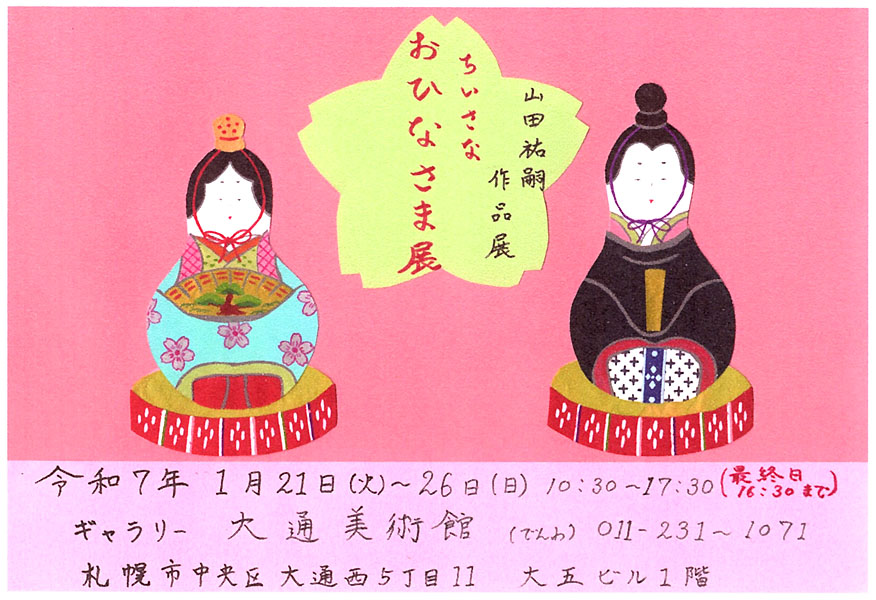 山田祐嗣
作品展
ちいさな
おひなさま展
令和7年 1月21日(火)~26日(日) 10:30~17:30(最終日16:30まで)
ギャラリー 大通美術館 (でんわ) 011-231~1071
札幌市中央区大通西5丁目11 大五ビル1階